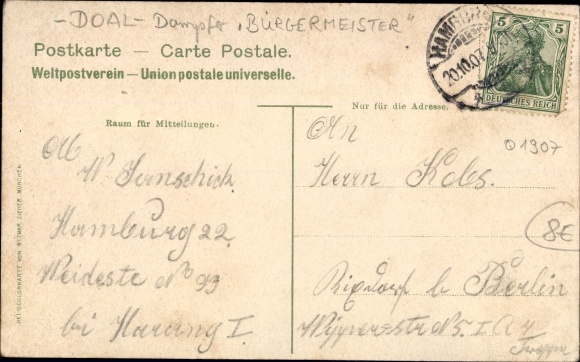 -DOAL- Dampfer „BÜRGERMEISTER"
Postkarte — Carte Postale.
Weltpostverein — Union postale universelle.
HAMBURG
20.10.07
5 5
DEUTSCHES REICH
Nur für die Adresse.
Raum für Mitteilungen.
An
Herrn Kobs.
O 1907
8€
Rixdorf b Berlin
Abs
W. Jernschick
Hamburg 22
Weideste No 99
bei Harung I.
HELIOCOLORKARTE VON OTTMAR ZIEHER, MÜNCHEN